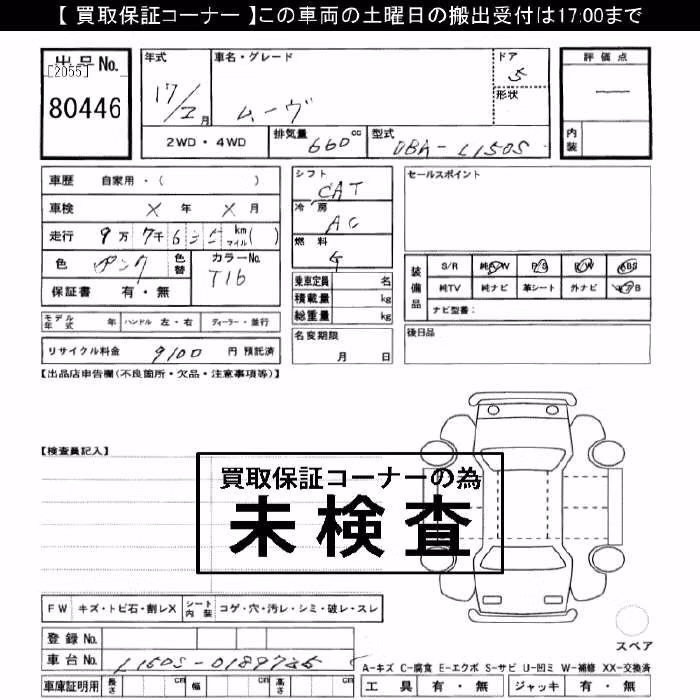 【 買取保証コーナー 】この車両の土曜日の搬出受付は17:00まで
出品No.
[2055]
80446
年式
17/2月
車名・グレード
ムーヴ
ドア
5
形状
評価点
—
内装
2WD・4WD
排気量 660 cc
型式 DBA-L150S
車歴 自家用・( )
車検 X 年 X 月
走行 9万7千6 km マイル ( )
色 ピンク 色替
カラーNo. T16
保証書 有・無
シフト CAT
冷房 AC
燃料 G
乗車定員 名
積載量 kg
総重量 kg
名変期限 月 日
セールスポイント
装備品
S/R 純A/W P/S P/W ABS
純TV 純ナビ 革シート 外ナビ エアB
ナビ型番:
後日品
モデル年式 年 ハンドル 左・右 ディーラー・並行
リサイクル料金 9100 円 預託済
【出品店申告欄(不良箇所・欠品・注意事項等)】
【検査員記入】
買取保証コーナーの為
未検査
FW キズ・トビ石・割レX シート内装 コゲ・穴・汚レ・シミ・破レ・スレ
登録No.
車台No. L150S-0189735
車庫証明用 長さ cm 幅 cm 高さ cm
スペア
A-キズ C-腐食 E-エクボ S-サビ U-凹ミ W-補修 XX-交換済
工具 有・無 ジャッキ 有・無